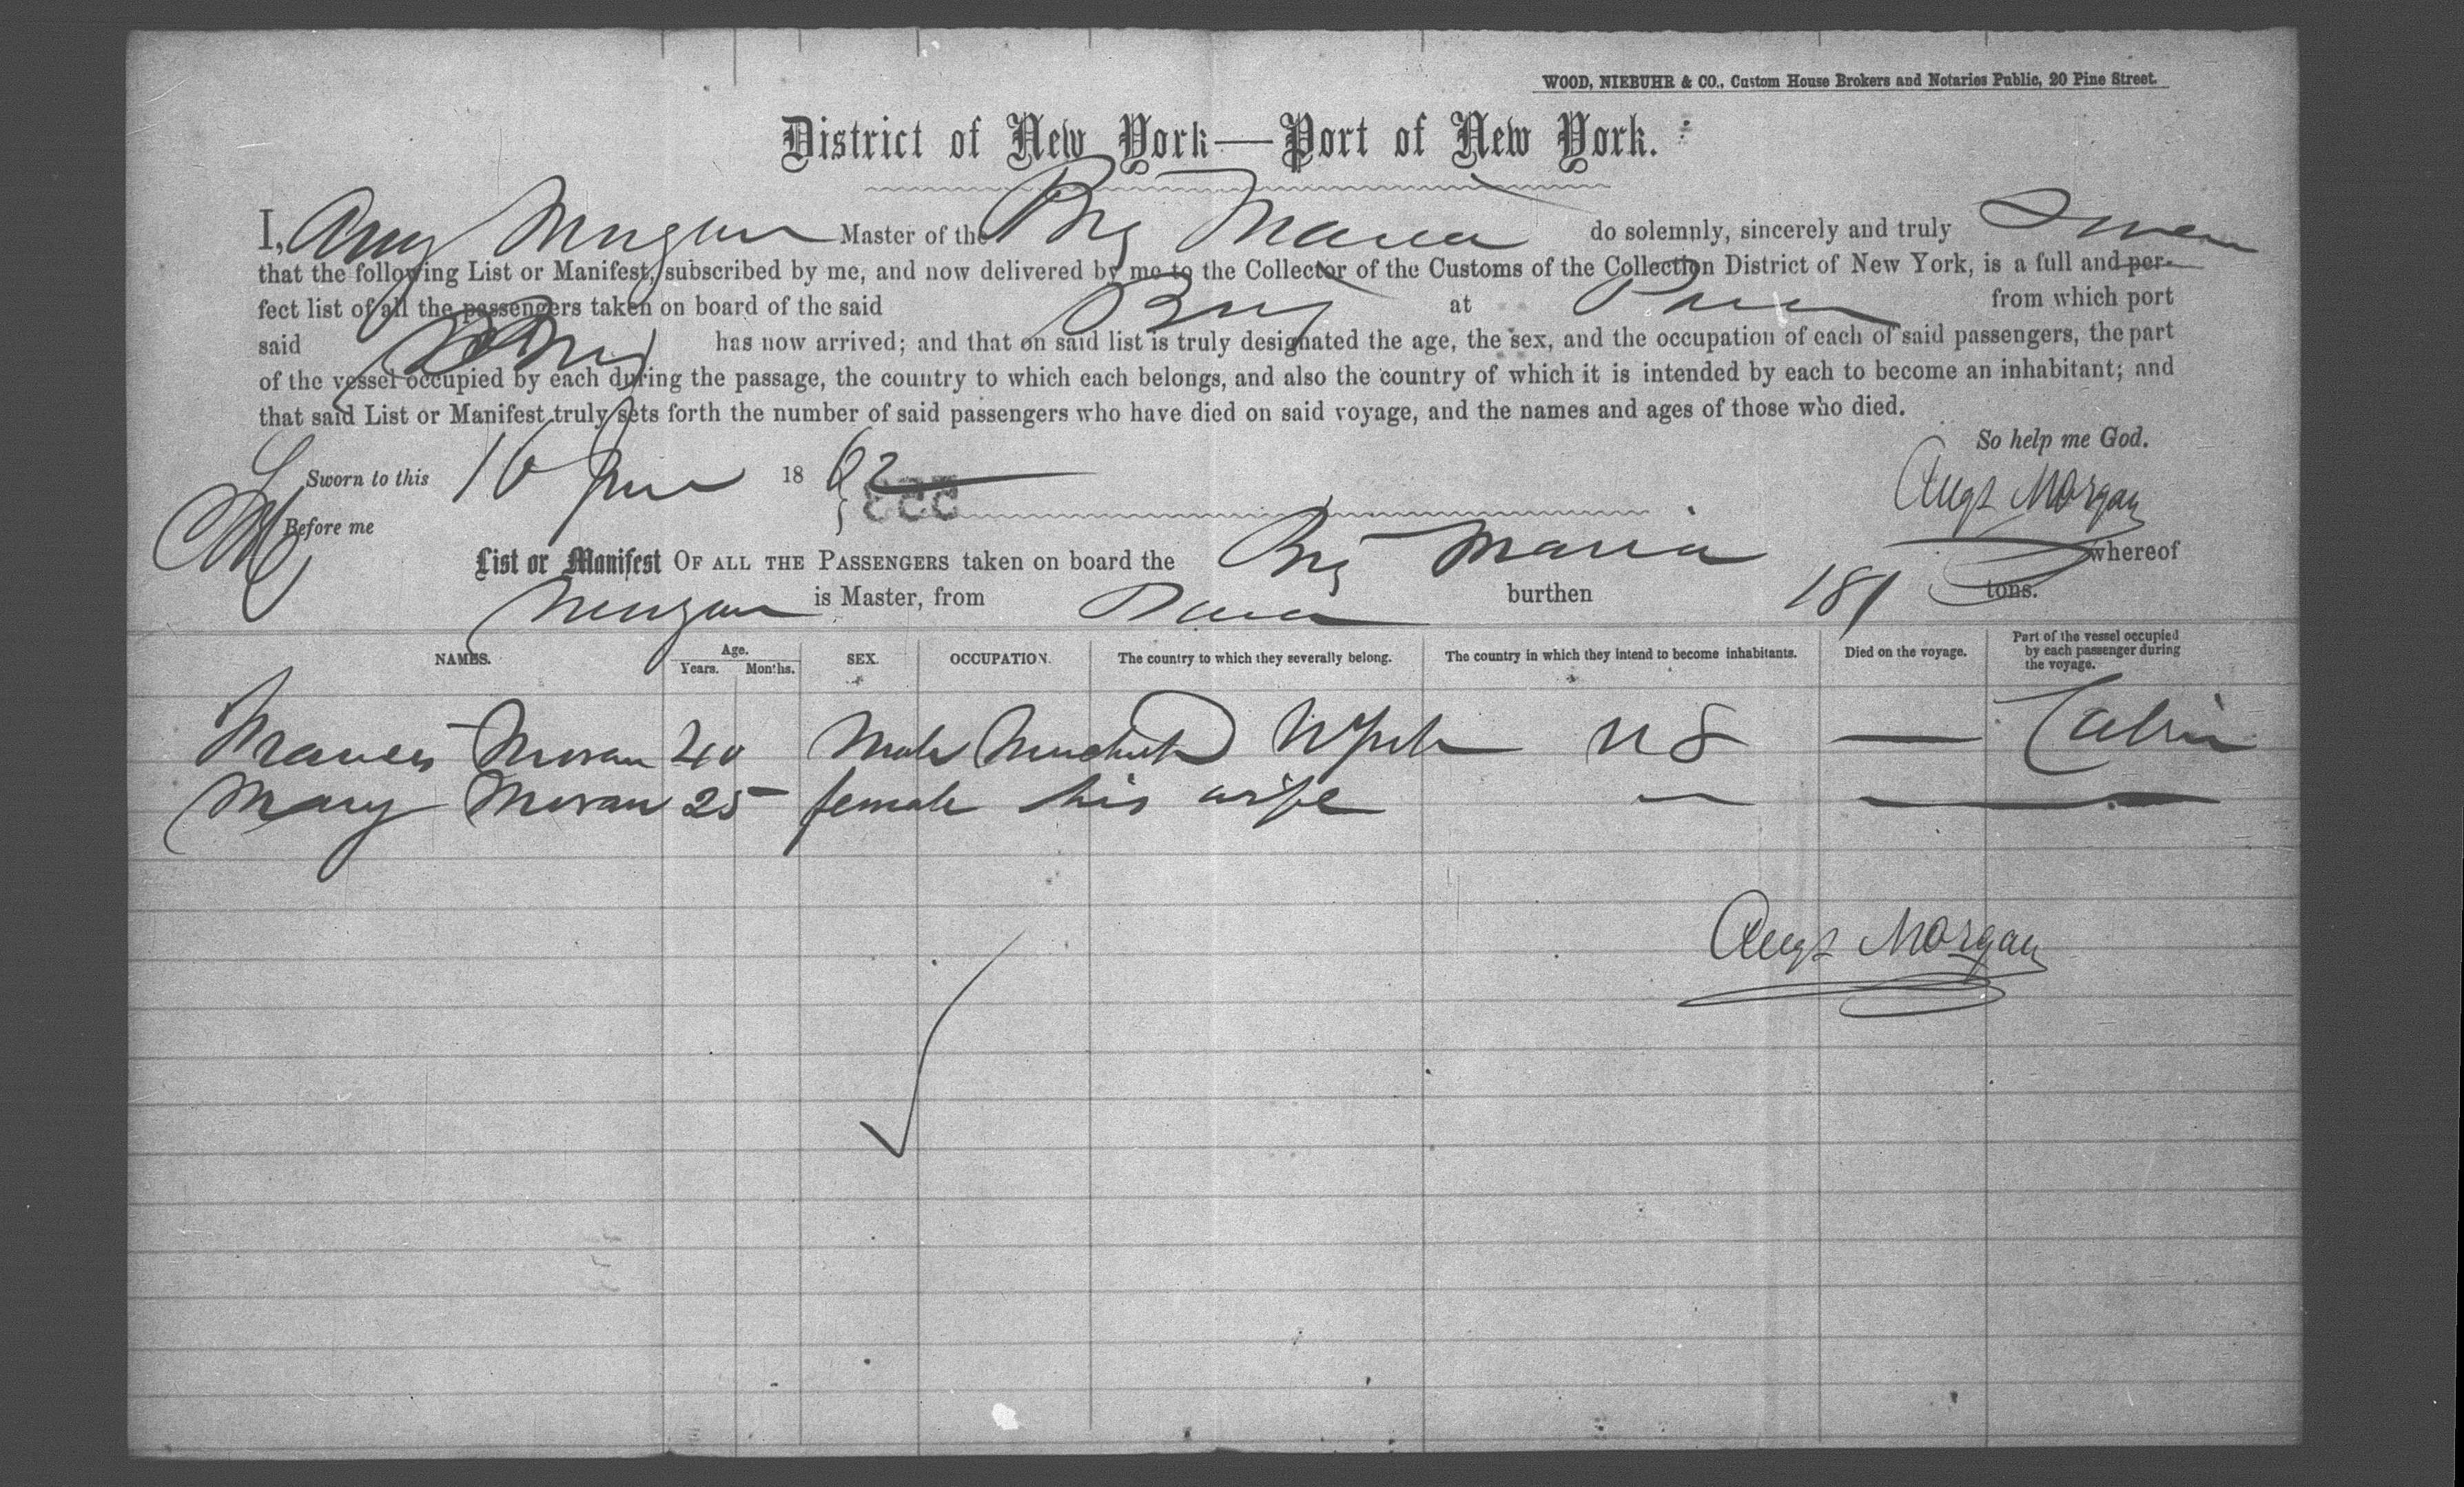 WOOD, NIEBUHR & CO., Custom House Brokers and Notaries Public, 20 Pine Street.
District of New York—Port of New York.
I, Aug Morgan Master of the Brig Maria do solemnly, sincerely and truly Swear
that the following List or Manifest, subscribed by me, and now delivered by me to the Collector of the Customs of the Collection District of New York, is a full and per-
fect list of all the passengers taken on board of the said Brig at from which port
said Brig has now arrived; and that on said list is truly designated the age, the sex, and the occupation of each of said passengers, the part
of the vessel occupied by each during the passage, the country to which each belongs, and also the country of which it is intended by each to become an inhabitant; and
that said List or Manifest truly sets forth the number of said passengers who have died on said voyage, and the names and ages of those who died.
So help me God.
Sworn to this 16 June 1862
Augt Morgan
Before me
List or Manifest OF ALL THE PASSENGERS taken on board the Brig Maria whereof
Morgan is Master, from burthen 181 tons.
NAMES. Age. Years. Months. SEX. OCCUPATION. The country to which they severally belong. The country in which they intend to become inhabitants. Died on the voyage. Part of the vessel occupied by each passenger during the voyage.
Frances Moran 40 Male U S — Cabin
Mary Moran 25 female his wife
Augt Morgan